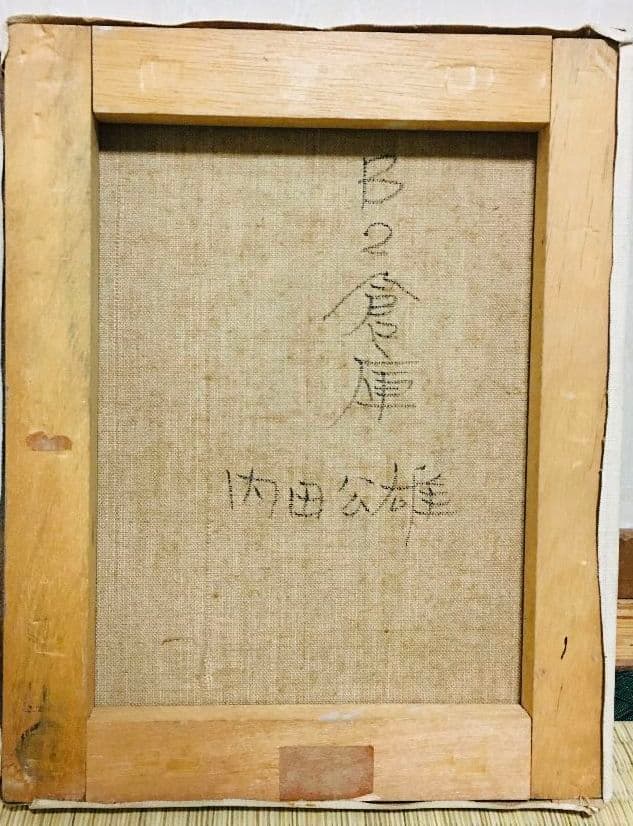 B2倉庫
内田公雄